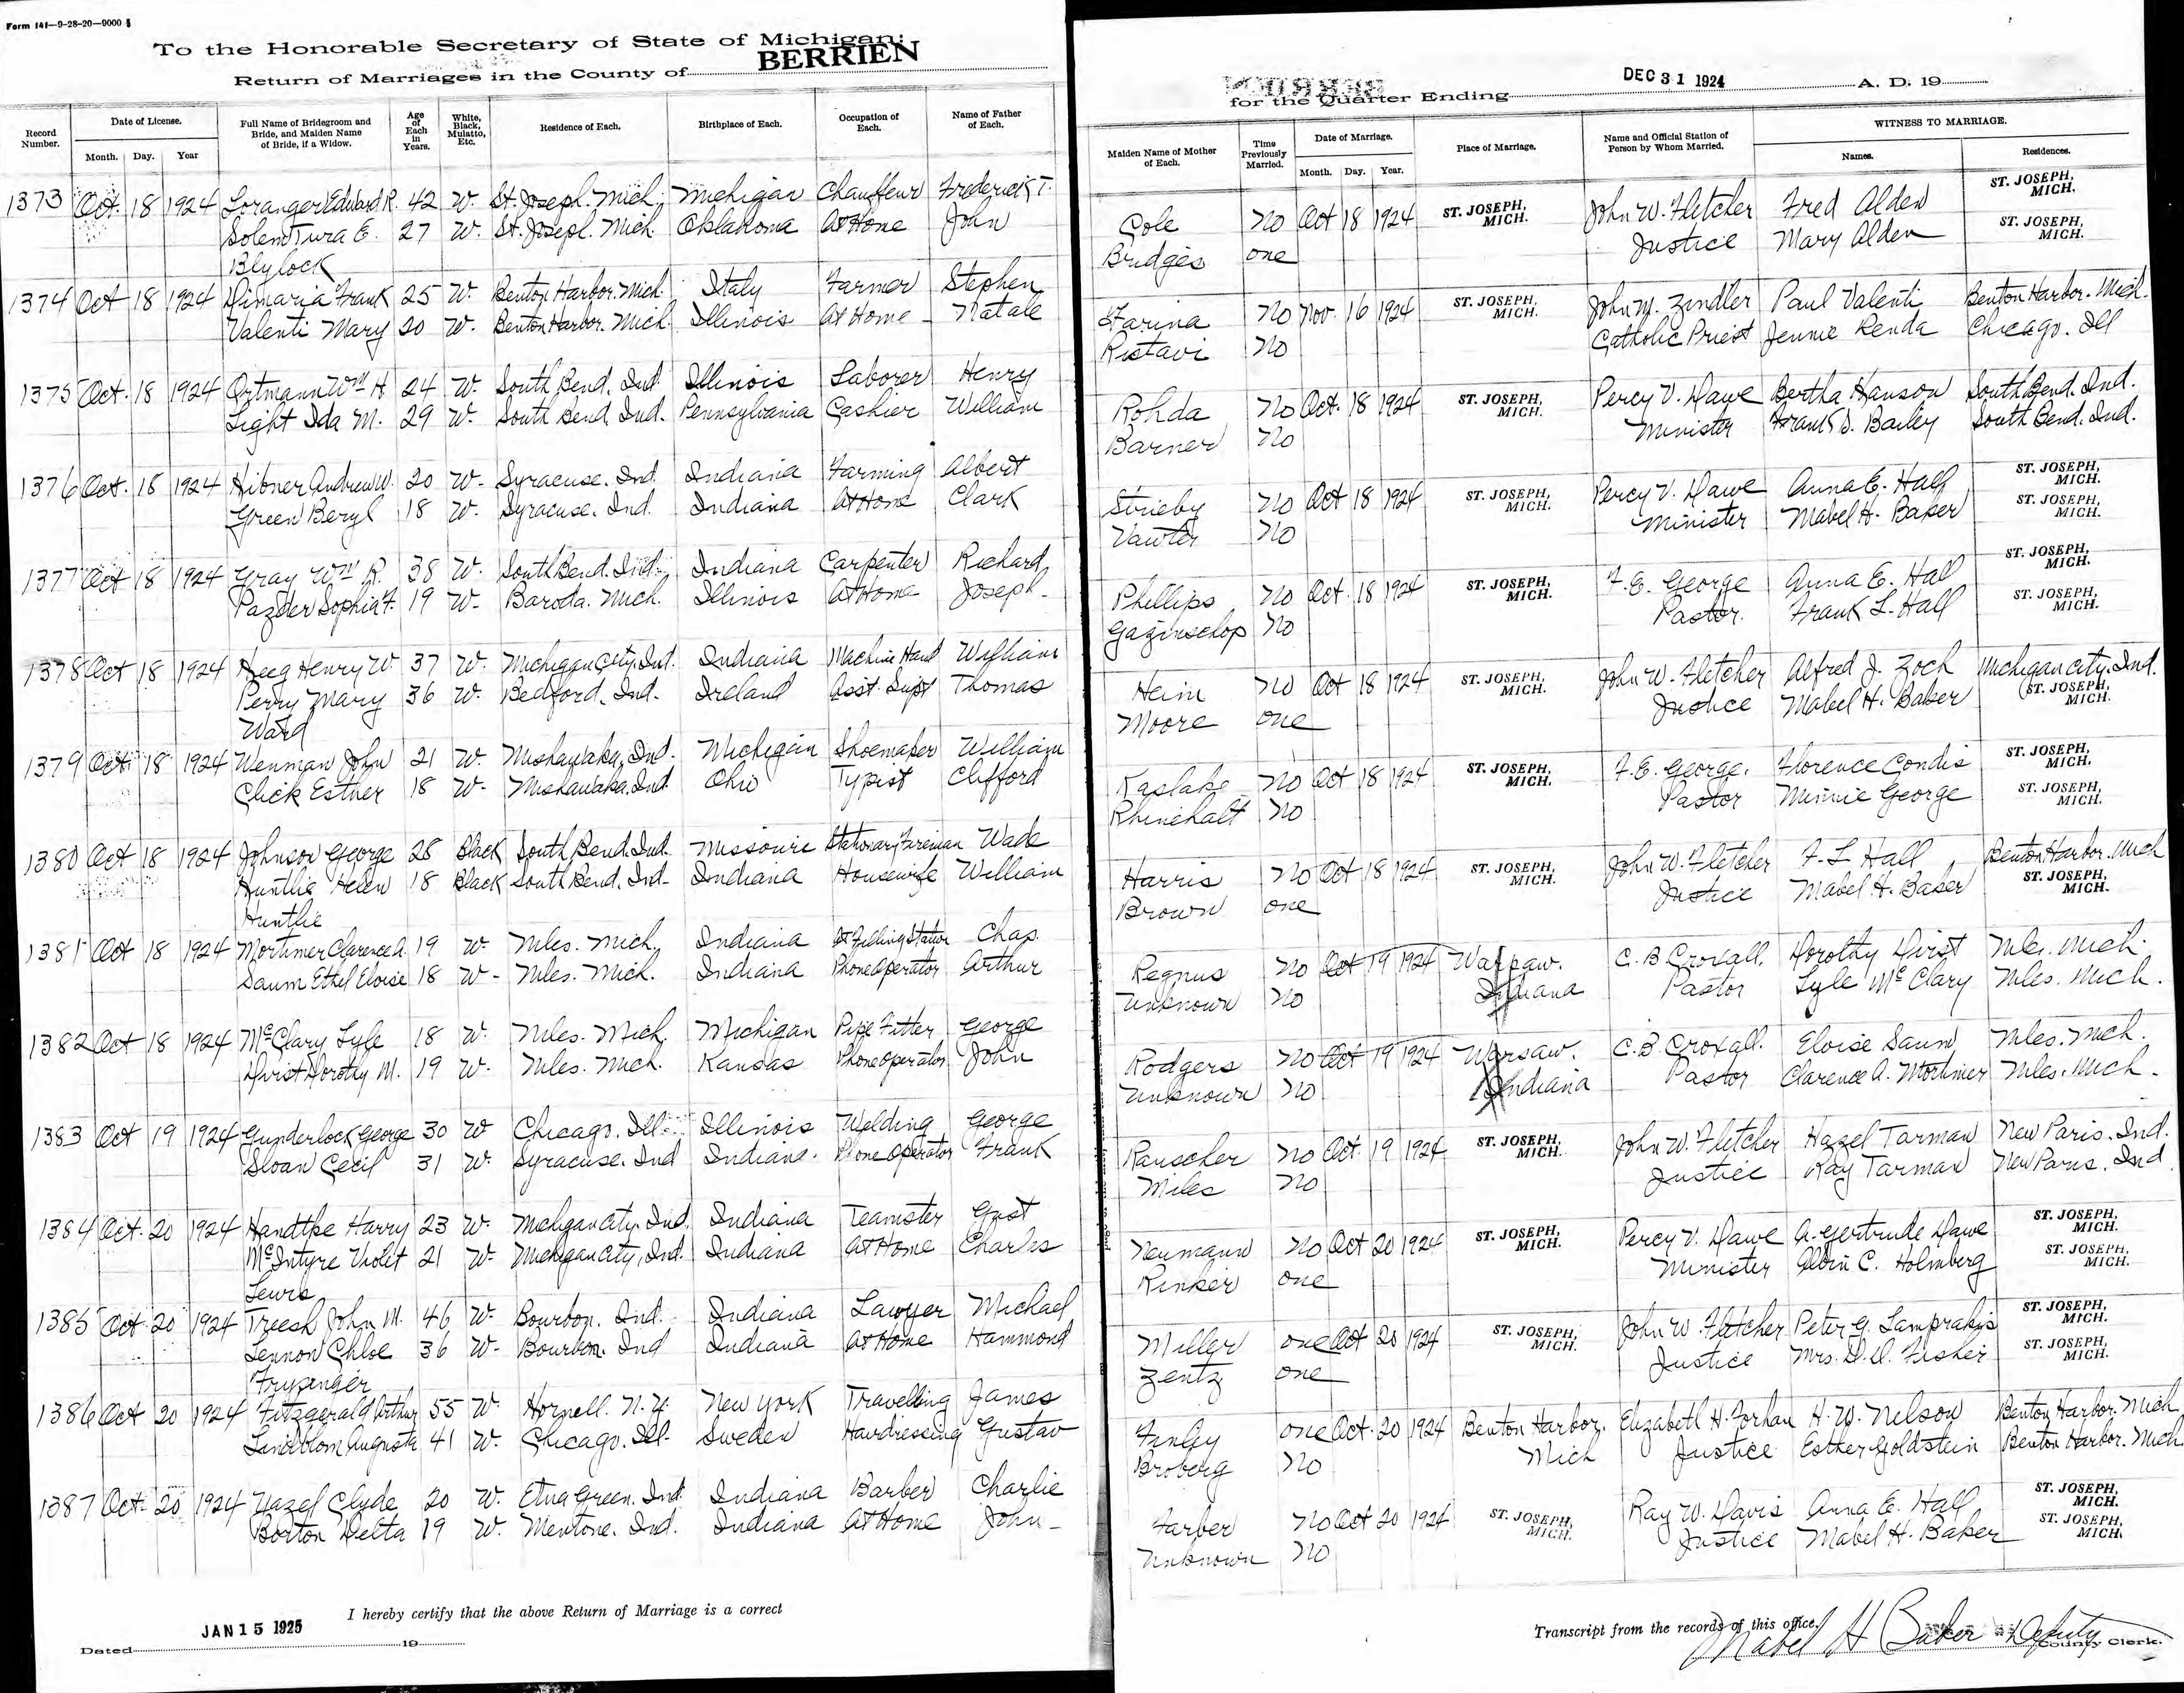 Form 141—9-28-20—9000
To the Honorable Secretary of State of Michigan:
Return of Marriages in the County of BERRIEN
for the Quarter Ending DEC 31 1924 A. D. 19
Record Number. Date of License. Month. Day. Year Full Name of Bridegroom and Bride, and Maiden Name of Bride, if a Widow. Age of Each in Years. White, Black, Mulatto, Etc. Residence of Each. Birthplace of Each. Occupation of Each. Name of Father of Each. Maiden Name of Mother of Each. Time Previously Married. Date of Marriage. Month. Day. Year. Place of Marriage. Name and Official Station of Person by Whom Married. WITNESS TO MARRIAGE. Names. Residences.
1373 Oct. 18 1924 Loranger Edward R. 42 W. St. Joseph. Mich. Michigan Chauffeur Frederick T. Cole No Oct 18 1924 ST. JOSEPH, MICH. John W. Fletcher Fred Alden ST. JOSEPH, MICH.
Solem Tura E. 27 W. St. Joseph. Mich Oklahoma At Home John Bridges one Justice Mary Alden ST. JOSEPH, MICH.
Blylock
1374 Oct 18 1924 Dimaria Frank 25 W. Benton Harbor. Mich. Italy Farmer Stephen Farina No Nov. 16 1924 ST. JOSEPH, MICH. John M. Zindler Paul Valenti Benton Harbor. Mich.
Valenti Mary 20 W. Benton Harbor. Mich Illinois At Home Natale Ristavi No Catholic Priest Jennie Renda Chicago. Ill
1375 Oct. 18 1924 Ortmann Wm H 24 W. South Bend. Ind Illinois Laborer Henry Rohda No Oct. 18 1924 ST. JOSEPH, MICH. Percy V. Dawe Bertha Hanson South Bend. Ind.
Light Ida M. 29 W. South Bend. Ind. Pennsylvania Cashier William Barner No Minister Frank D. Bailey South Bend. Ind.
1376 Oct. 18 1924 Hibner Andrew W. 20 W- Syracuse. Ind. Indiana Farming Albert Strieby No Oct 18 1924 ST. JOSEPH, MICH. Percy V. Dawe Anna E. Hall ST. JOSEPH, MICH.
Green Beryl 18 W. Syracuse. Ind. Indiana At Home Clark Vawter No Minister Mabel H. Baker ST. JOSEPH, MICH.
1377 Oct 18 1924 Gray Wm R. 38 W. South Bend. Ind. Indiana Carpenter Richard Phillips No Oct. 18 1924 ST. JOSEPH, MICH. F. E. George Anna E. Hall ST. JOSEPH, MICH.
Pazder Sophia F. 19 W- Baroda. Mich. Illinois At Home Joseph- Gazinschop No Pastor. Frank L. Hall ST. JOSEPH, MICH.
1378 Oct 18 1924 Heeg Henry W 37 W. Michigan City. Ind. Indiana Machine Hand William Heim No Oct 18 1924 ST. JOSEPH, MICH. John W. Fletcher Alfred J. Zoch Michigan City. Ind.
Perry Mary 36 W. Bedford. Ind. Ireland Asst. Supt Thomas Moore one Justice Mabel H. Baker ST. JOSEPH, MICH.
Ward
1379 Oct. 18 1924 Wenman John 21 W. Mishawaka, Ind. Michigan Shoemaker William Kaslake No Oct 18 1924 ST. JOSEPH, MICH. F. E. George. Florence Condis ST. JOSEPH, MICH.
Click Esther 18 W- Mishawaka. Ind Ohio Typist Clifford Rhinehalt No Pastor Minnie George ST. JOSEPH, MICH.
1380 Oct 18 1924 Johnson George 28 Black South Bend. Ind. Missouri Stationary Fireman Wade Harris No Oct 18 1924 ST. JOSEPH, MICH. John W. Fletcher F. L Hall Benton Harbor. Mich
Hunthe Helen 18 Black South Bend. Ind- Indiana Housewife William Brown one Justice Mabel H. Baker ST. JOSEPH, MICH.
Hunthe
1381 Oct 18 1924 Mortimer Clarence A. 19 W. Niles. Mich. Indiana At Filling Station Chas. Regnus No Oct 19 1924 Warsaw. C. B Croxall. Dorothy Hirst Niles. Mich.
Saum Ethel Eloise 18 W- Niles. Mich. Indiana Phone Operator Arthur Unknown No Indiana Pastor Lyle McClary Niles. Mich.
1382 Oct 18 1924 McClary Lyle 18 W. Niles. Mich. Michigan Pipe Fitter George Rodgers No Oct 19 1924 Warsaw. C. B. Croxall. Eloise Saum Niles. Mich.
Hirst Dorothy M. 19 W. Niles. Mich. Kansas Phone operator John Unknown No Indiana Pastor Clarence A. Mortimer Niles. Mich.
1383 Oct 19 1924 Gunderlock George 30 W Chicago. Ill. Illinois Welding George Rauscher No Oct. 19 1924 ST. JOSEPH, MICH. John W. Fletcher Hazel Tarman New Paris. Ind.
Sloan Cecil 31 W. Syracuse. Ind Indiana. Phone Operator Frank Miles No Justice Ray Tarman New Paris. Ind
1384 Oct. 20 1924 Handtke Harry 23 W. Michigan City. Ind. Indiana Teamster Gust Neumann No Oct 20 1924 ST. JOSEPH, MICH. Percy V. Dawe A. Gertrude Dawe ST. JOSEPH, MICH.
McIntyre Violet 21 W- Michigan City, Ind. Indiana At Home Charles Rinker one Minister Albin C. Holmberg ST. JOSEPH, MICH.
Lewis
1385 Oct. 20 1924 Treesh John M. 46 W. Bourbon. Ind. Indiana Lawyer Michael Miller one Oct 20 1924 ST. JOSEPH, MICH. John W. Fletcher Peter G. Lamprakis ST. JOSEPH, MICH.
Lennon Chloe 36 W- Bourbon. Ind Indiana At Home Hammond Zentz one Justice Mrs. D. D. Fisher ST. JOSEPH, MICH.
Frypenger
1386 Oct 20 1924 Fitzgerald Arthur 55 W. Hornell. N. Y. New York Travelling James Finley one Oct. 20 1924 Benton Harbor. Elizabeth H. Forhan H. W. Nelson Benton Harbor. Mich
Lindblom Augusta 41 W. Chicago. Ill. Sweden Hairdressing Gustav Broberg No Mich Justice Esther Goldstein Benton Harbor. Mich
1387 Oct. 20 1924 Nazel Clyde 20 W. Etna Green. Ind. Indiana Barber Charlie Farber No Oct 20 1924 ST. JOSEPH, MICH. Ray W. Davis Anna E. Hall ST. JOSEPH, MICH.
Borton Delta 19 W. Mentone. Ind. Indiana At Home John- Unknown No Justice Mabel H. Baker ST. JOSEPH, MICH.
I hereby certify that the above Return of Marriage is a correct
Transcript from the records of this office.
Dated JAN 15 1925 19
Mabel H Baker Deputy County Clerk.